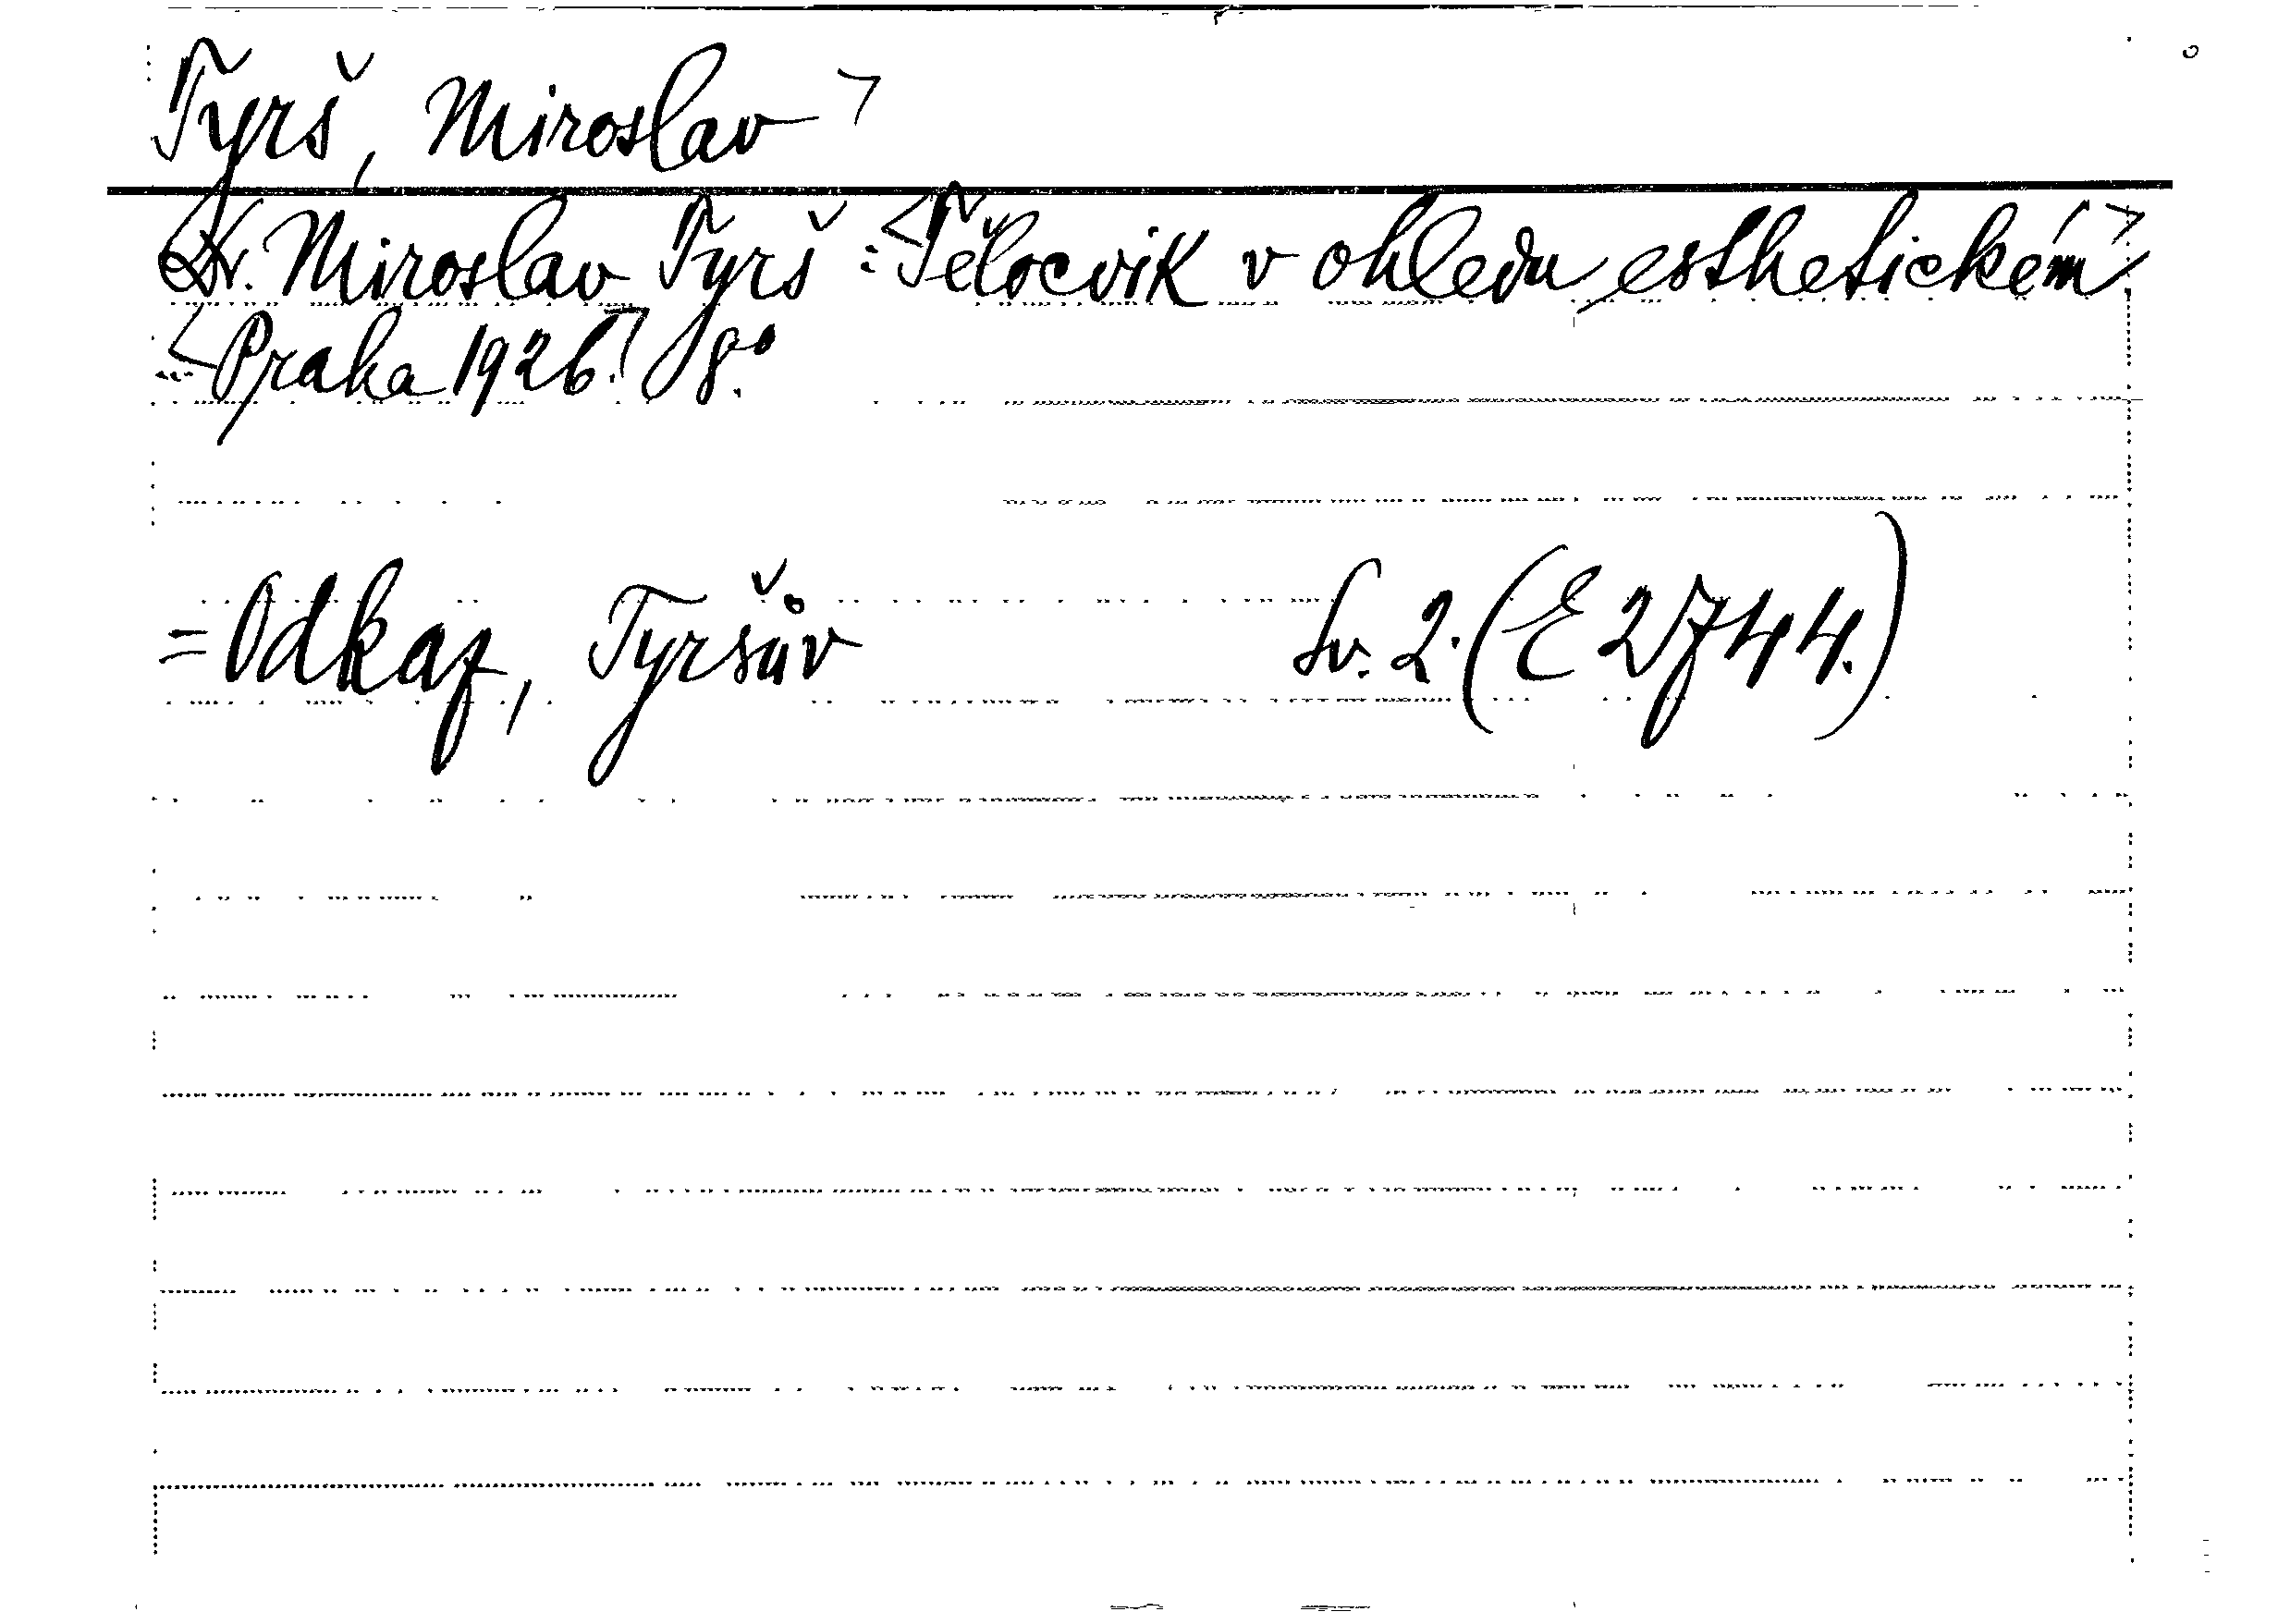 Tyrš, Miroslav >
Dr. Miroslav Tyrš : <Tělocvik v ohledu esthetickém.>
<Praha 1926.> 8.°
= Odkaz, Tyršův Sv. 2. (E 2744.)